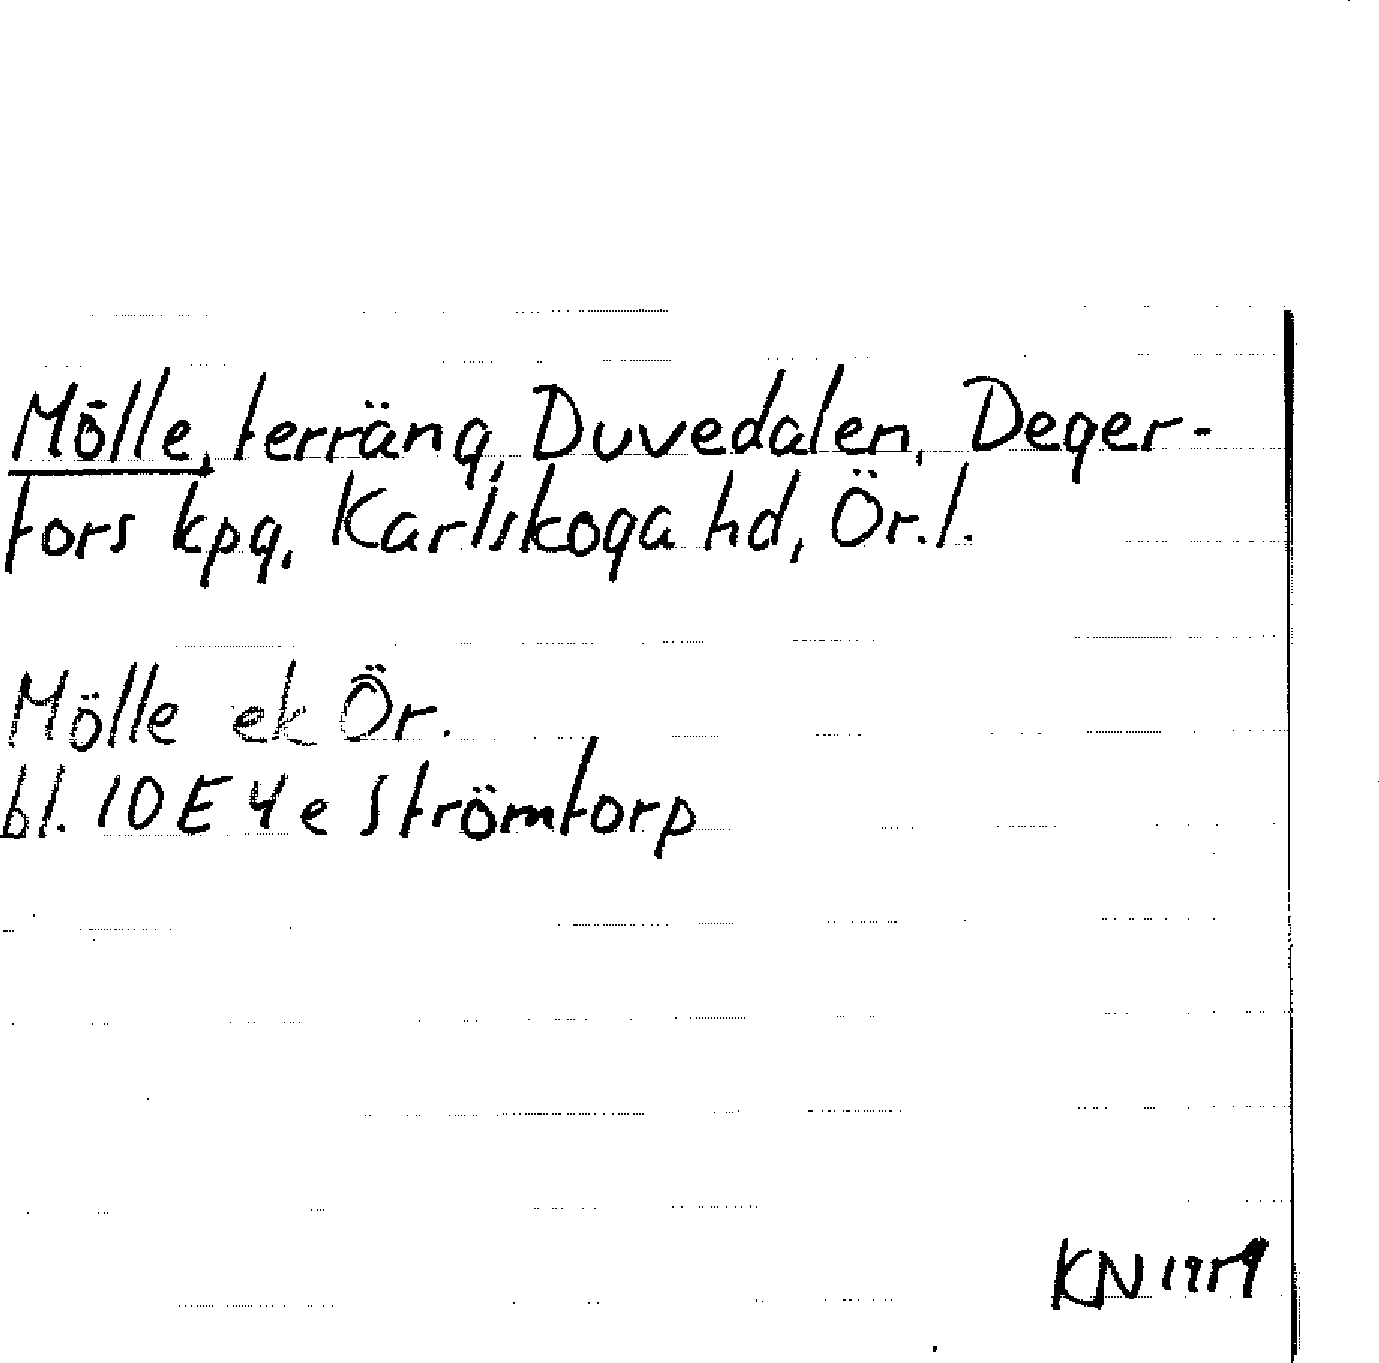 Mölle, terräng, Duvedalen, Deger-
fors kpg, Karlskoga hd, Ör.l.
Mölle ek Ör.
bl. 10E 4e Strömtorp
KN 1959